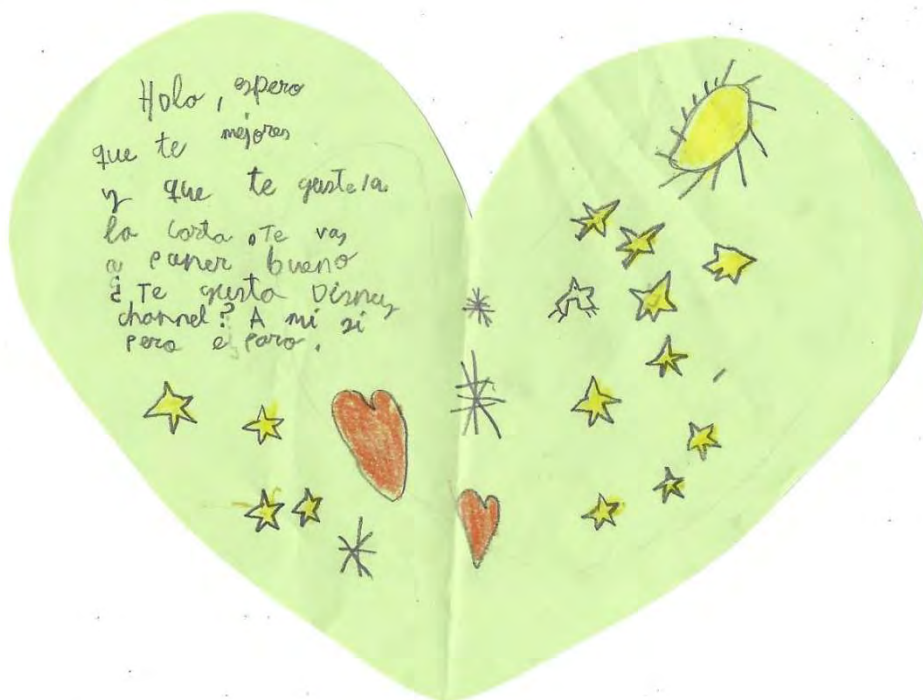 Hola, espero
que te mejores
y que te gustela
la carta. Te vas
a poner bueno
¿Te gusta Disney
channel? A mi si
pero e